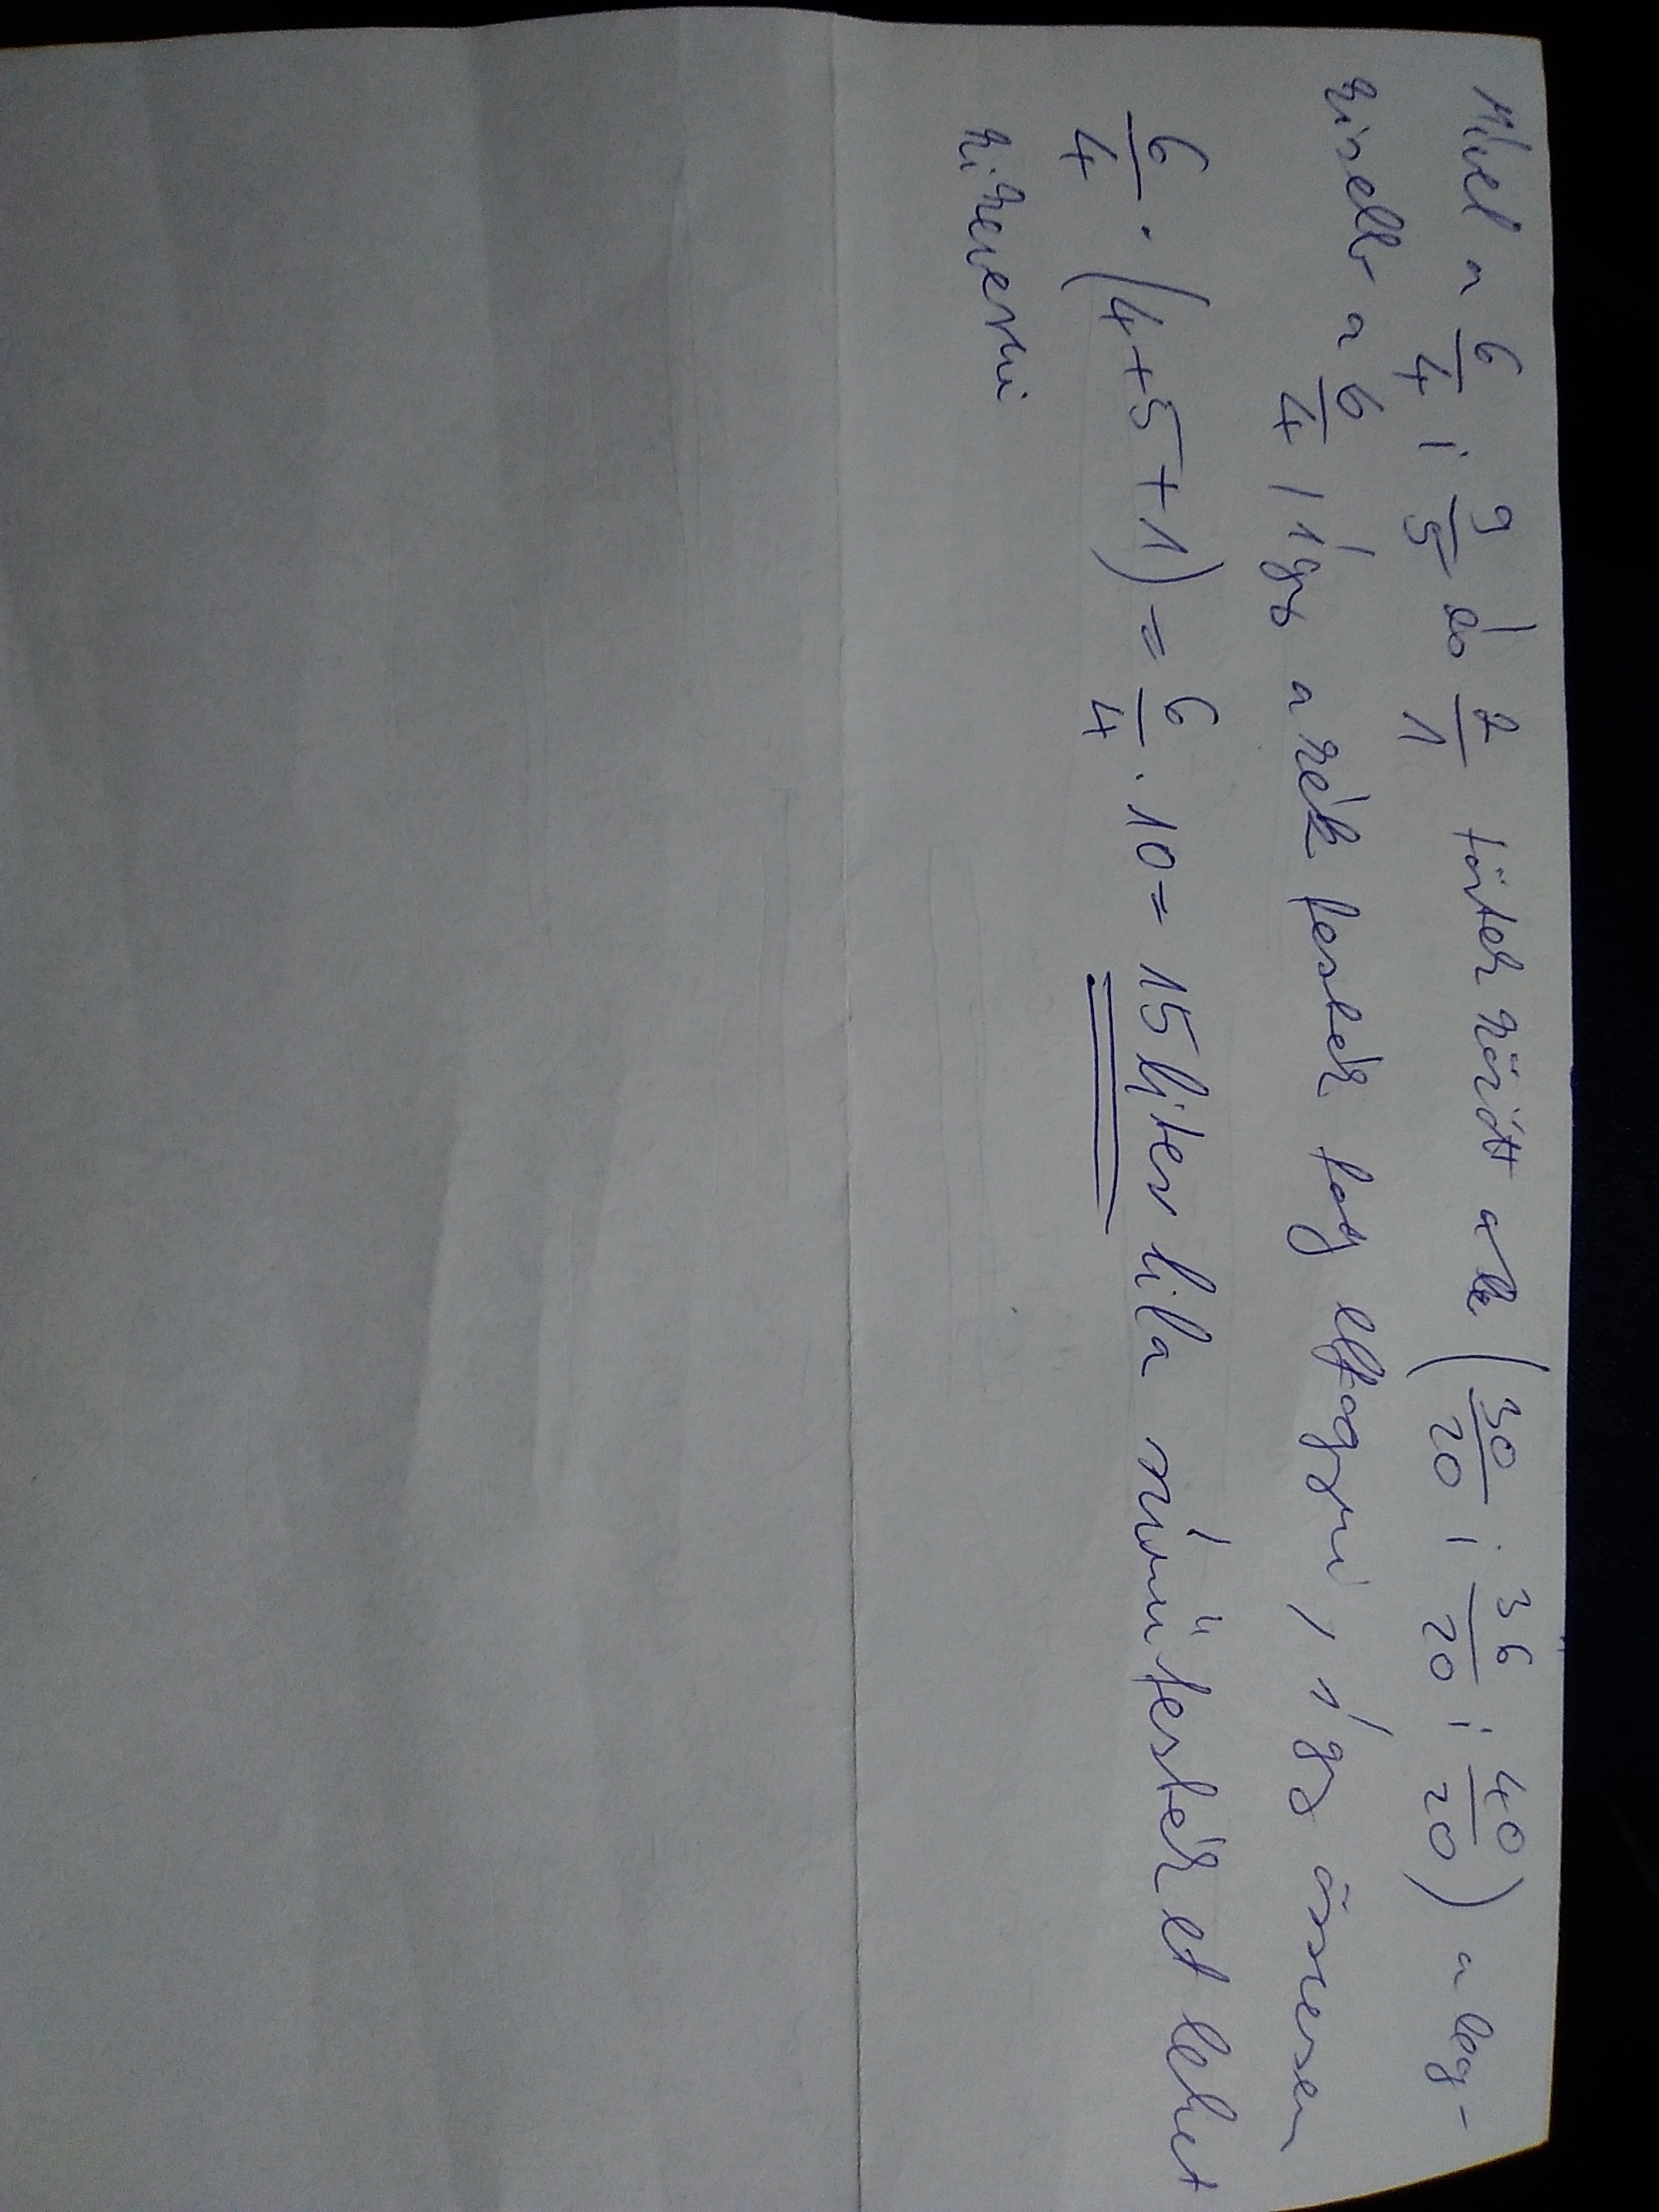 Mivel a 6/4 ; 9/5 és 2/1 törtek között a (30/20 ; 36/20 ; 40/20) a leg-
kisebb a 6/4, így a kék festék fog elfogyni, így összesen
6/4 · (4+5+1) = 6/4 · 10 = 15 liter lila színű festéket lehet
kikeverni